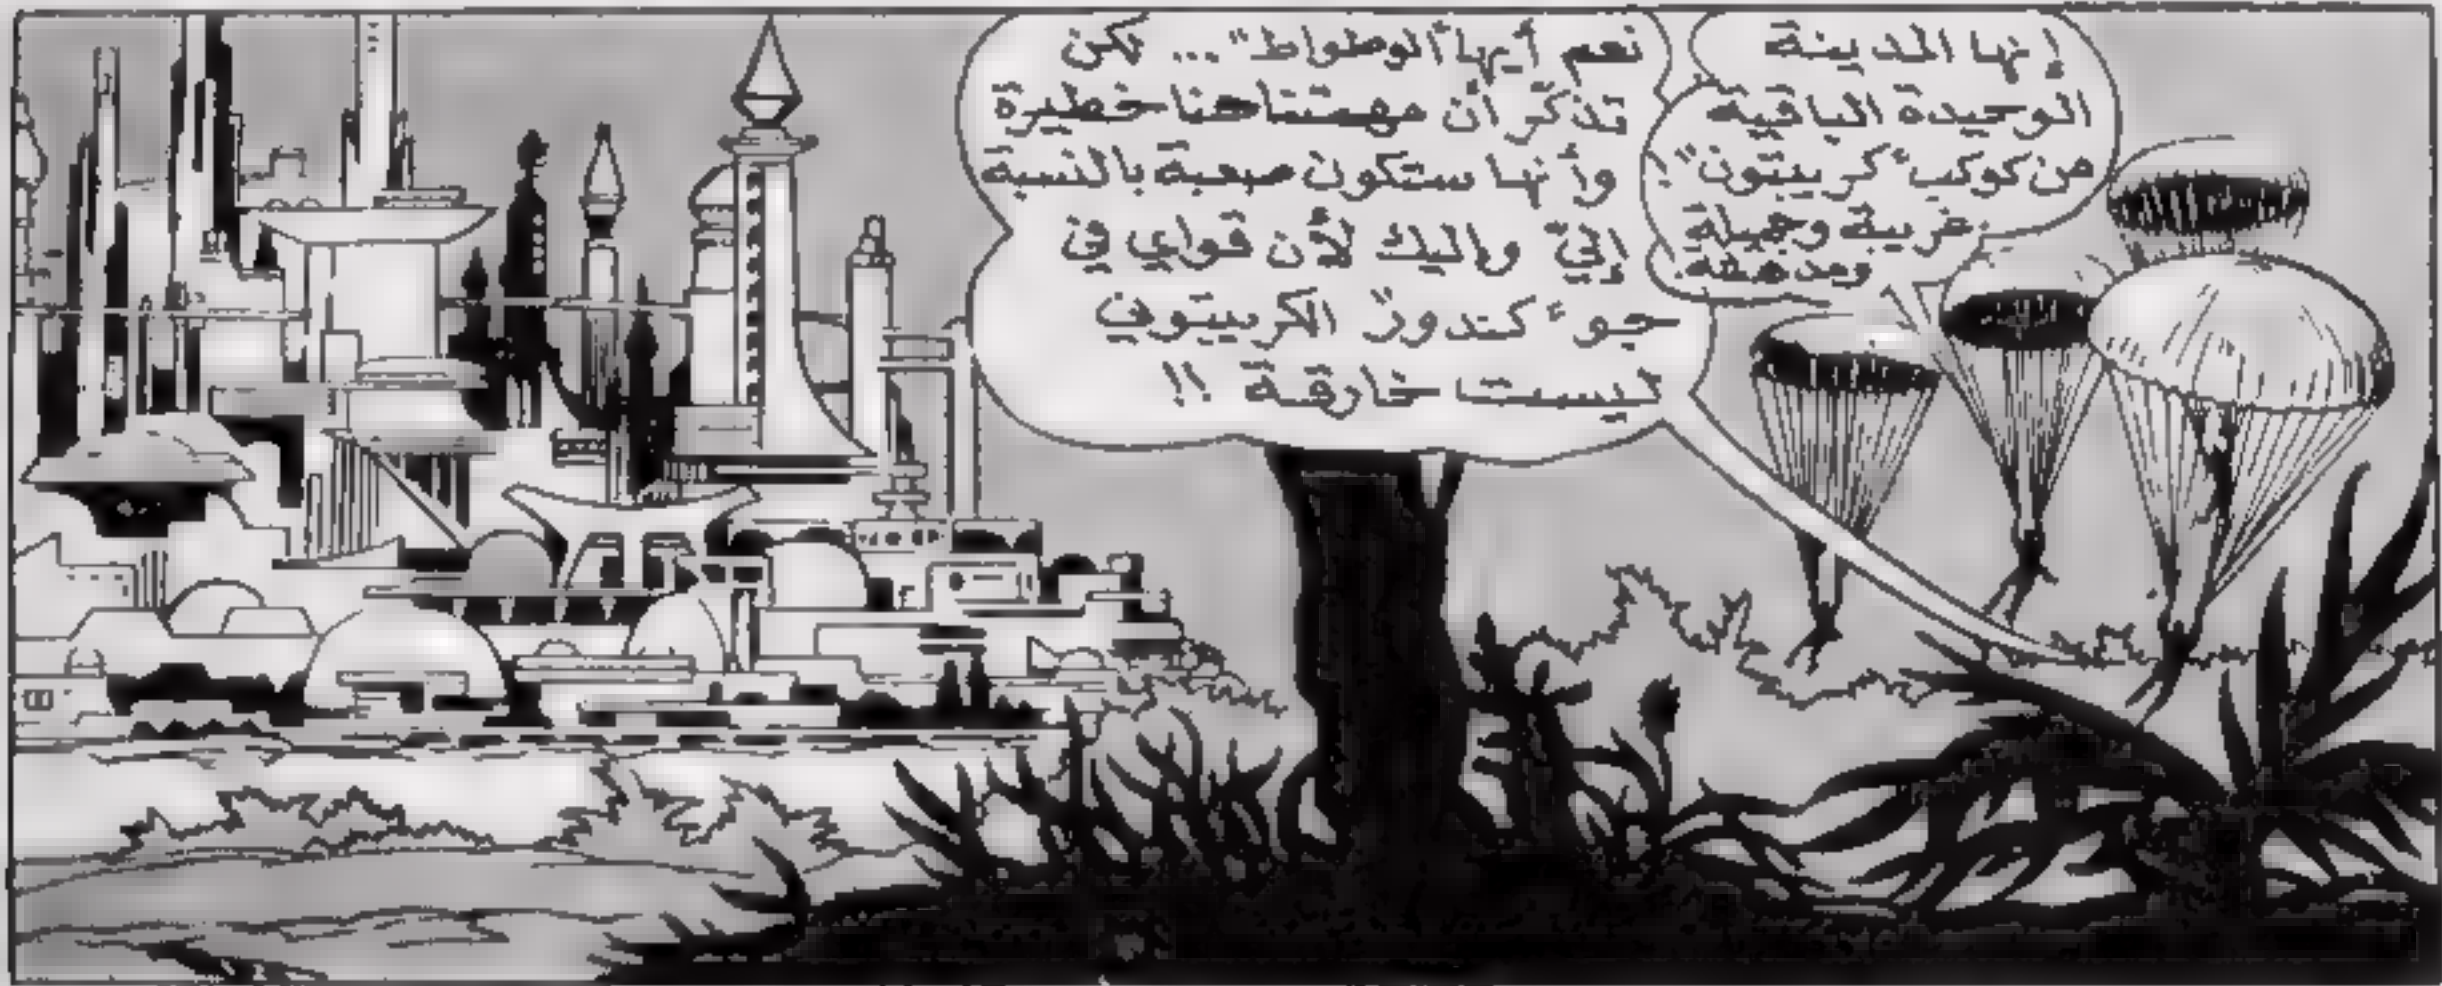 إنها المدينة
الوحيدة الباقية
من كوكب "كريبتون"!
غريبة وجميلة
ومدهشة!
نعم أيها "الوطواط"... لكن
تذكّر أن مهمتنا هنا خطيرة
وأنها ستكون صعبة بالنسبة
إليّ وإليك لأن قواي في
جو "كندور" الكريبتوني
ليست خارقة !!